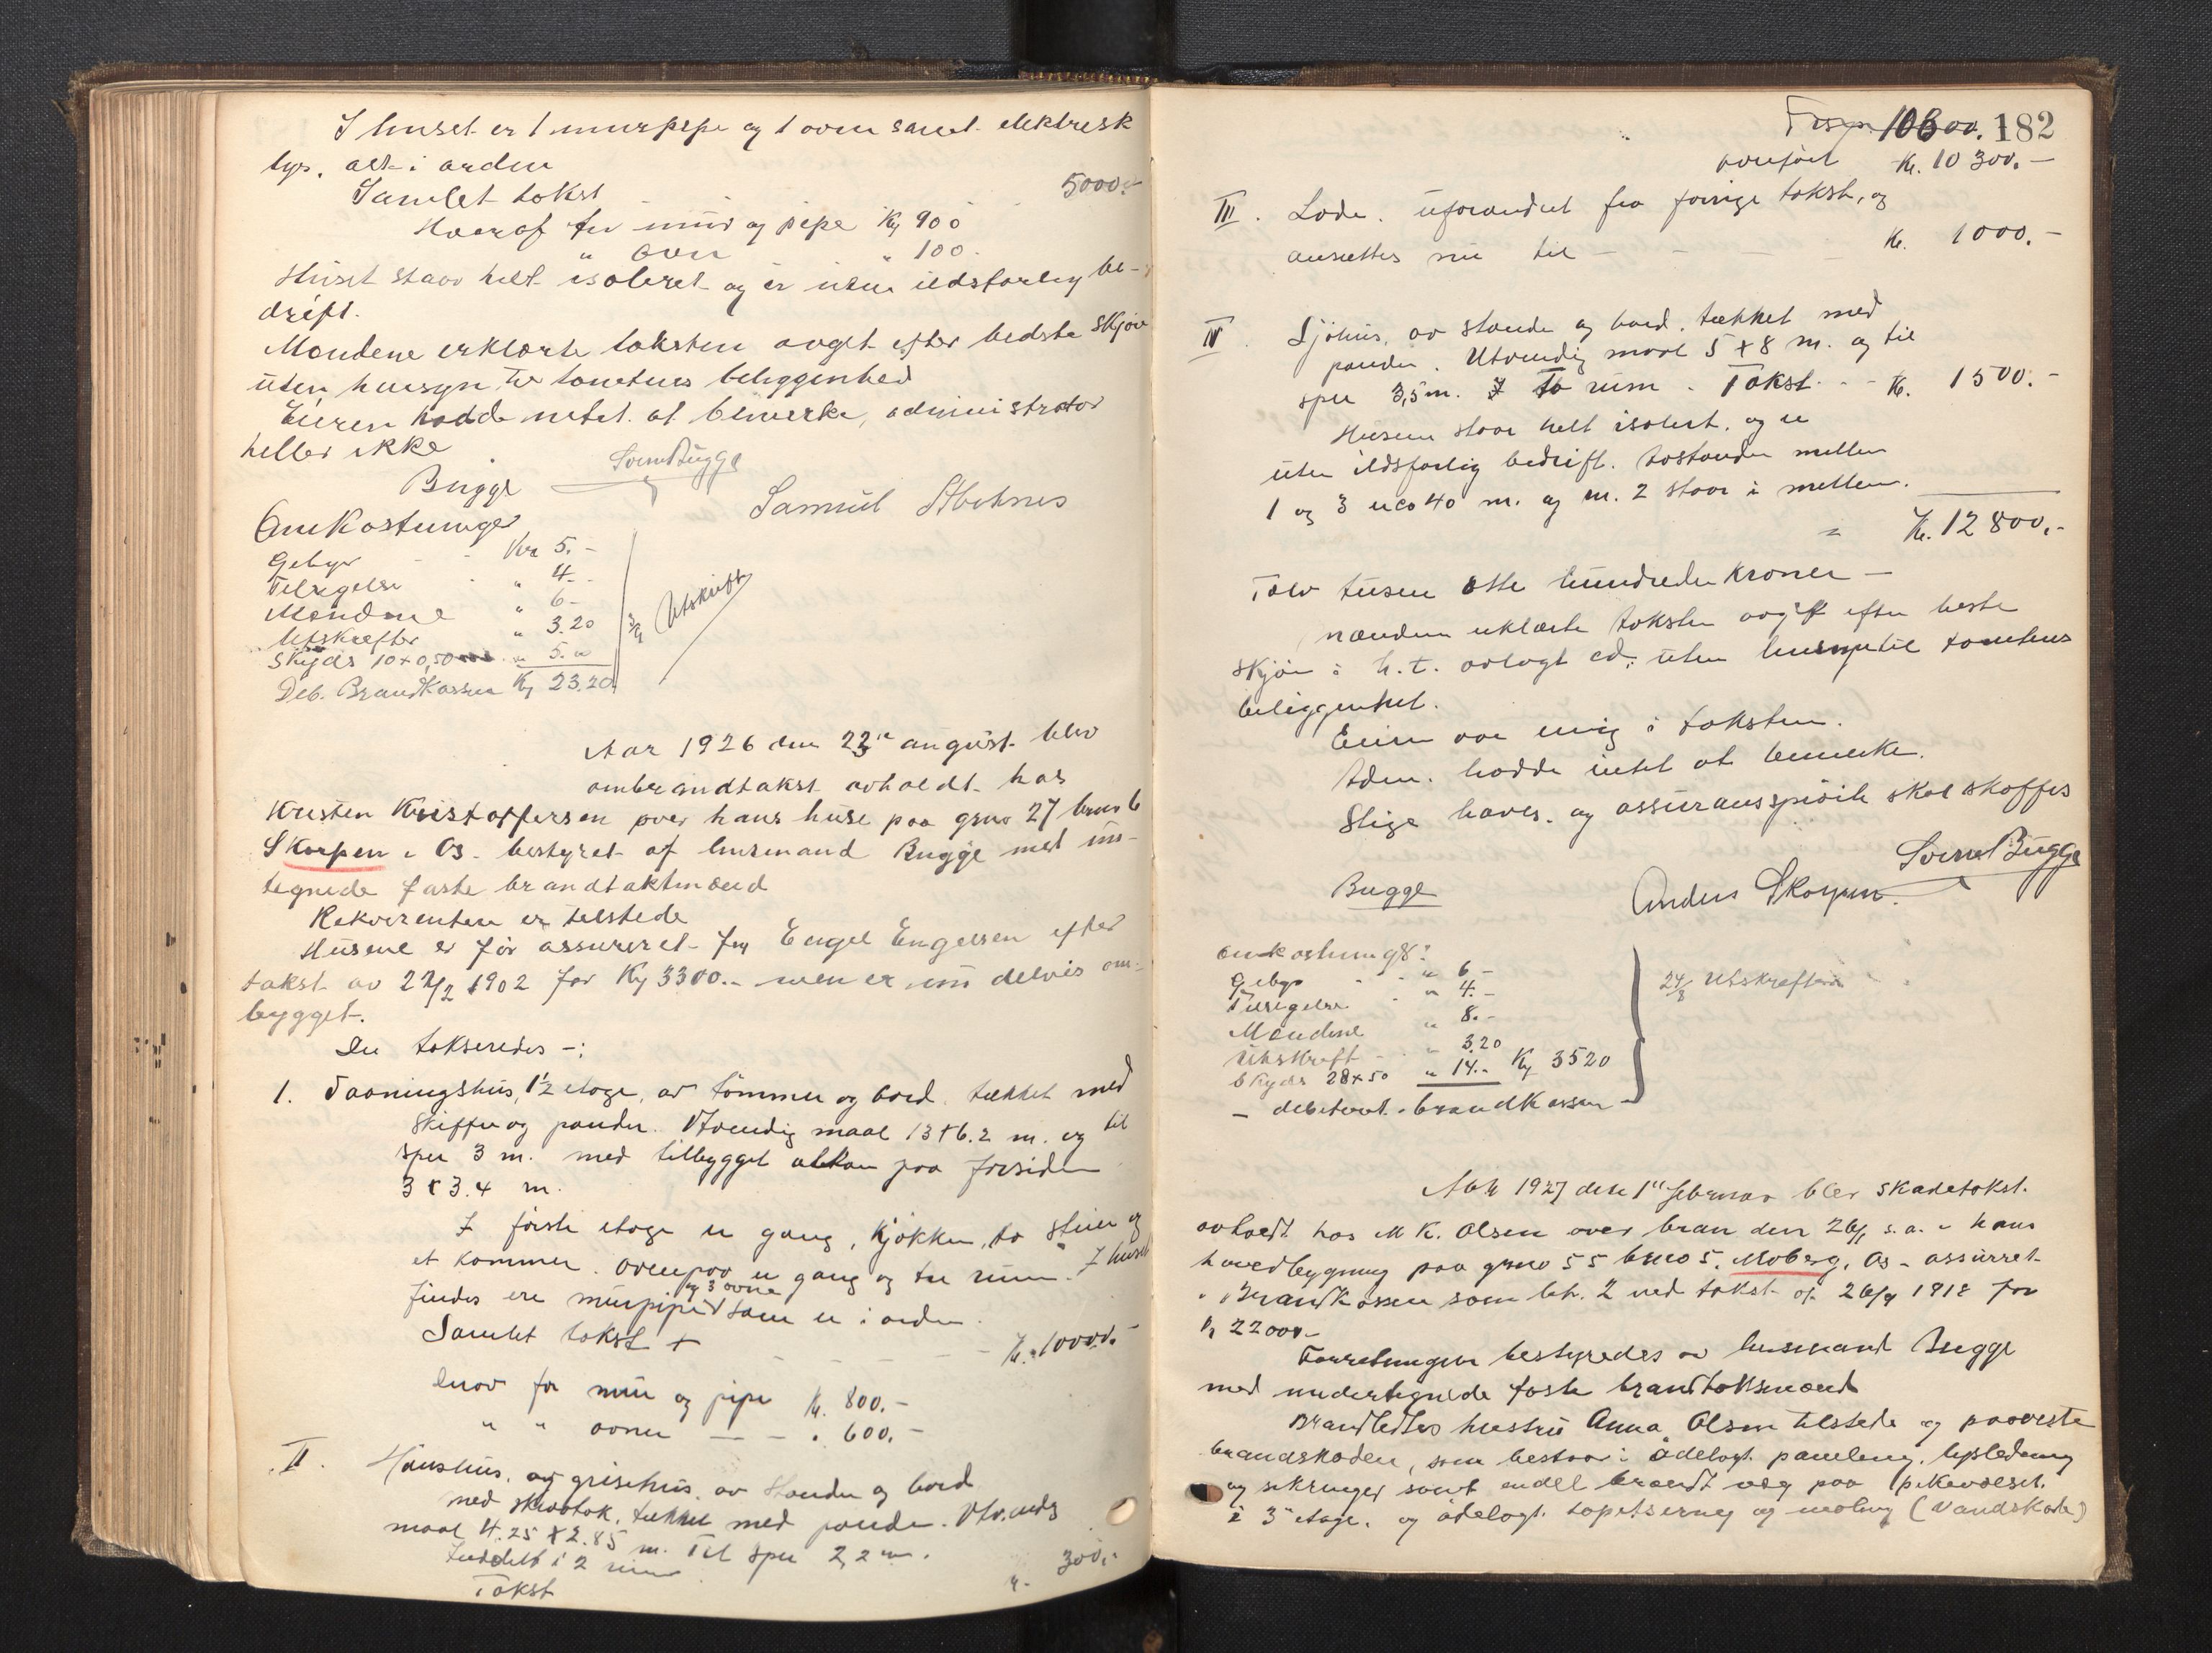 I huset er 1 murpipe og 1 oven samt elektrisk
lys, alt i orden
Samlet takst 5000.-
Hvoraf for mur og pipe Kr 900
" oven " 100.
Huset staar helt isoleret og er uten ildsfarlig be-
drift.
Mændene erklærte taksten avget efter bedste skjøn
uten hensyn til tomtens beliggenhed
Eieren hadde intet at bemerke, administrator
heller ikke
Bugge
Samuel
Omkostninger
Gebyr Kr 5.-
Tilsigelse " 4.-
Mændene " 6-
Utskrifter " 3.20
Skyds 10+0,50 " 5.00
Deb. Brandkassen Kr 23.20
Utskrift
Aar 1926 den 23de august blev
ombrandtakst avholdt hos
Kristen Kristoffersen over hans huse paa gno 27 bno 6
Skorpen i Os. bestyret af lensmand Bugge med un-
tegnede faste brandtakstmænd
Rekvirenten er tilstede
Husene er før assureret for Engel Engelsen efter
takst av 22/2 1902 for Kr 3300.- men er nu delvis om-
bygget.
Der takseredes -:
1. Vaaningshus, 1½ etage, av tømmer og bord. tækket med
skiffer og pander. Utvendig maal 13+6.2 m. og til
sper 3 m. med tilbygget altan paa forsiden
3 x 3.4 m.
I første etage er gang, kjøkken, to stuer og
et kammer. ovenpaa er gang og tre rum. I huset
findes en murpipe og 3 ovne som er i orden.
Samlet takst Kr. 10000.-
Derav for mur og pipe Kr. 800.-
" " ovner - - " 600.-
II. Hønshus, og grisehus, av stender og bord
med skraatak, tækket med pander. Utvendig
maal 4.25 x 2.85 m. Til sper 2,2 m.
Inddelt i 2 rum
Takst 300.-
10600. 182
overført Kr. 10 300.-
III. Løde. uforandret fra forrige takst, og
ansættes nu til - - Kr. 1000.-
IV. Sjøhus, av stender og bord. tækket med
pander. Utvendig maal 5 x 8 m. og til
sper 3,5 m. to rum. Takst - - Kr. 1500.-
Husene staar helt isolert, og er
uten ildsfarlig bedrift. Avstanden mellem
1 og 3 er ca 40 m. og nr. 2 staar i mellem.
Kr. 12 800.-
Tolv tusen otte hundrede kroner -
Mændene erklærte taksten avgit efter beste
skjøn i h.t. avlagt ed, uten hensyn til tomtens
beliggenhet.
Eieren var enig i taksten.
Adm. hadde intet at bemerke.
Stige haves, og assuransespröite skal skaffes
Bugge
Anders Skorpen.
Omkostninger:
Gebyr " 6-
Tilsigelse " 4.-
Mændene " 8.-
Utskrift - " 3.20
Skyds 28x50 " 14.- Kr 3520
- debiteret brandkassen -
24/8 Utskreften
Aar 1927 den 1ste februar blev skadetakst
avholdt hos M K. Olsen over bran den 26/1 s.a. i hans
hovedbygning paa gno 55 bno 5, Moberg, Os - assurret
i Brandkassen som litr. 2 ved takst af 26/9 1918 for
Kr 22000.-
Forretningen bestyredes av lensmand Bugge
med undertegnede faste brandtakstmænd
Brandlidtes hustru Anna Olsen tilstede og paaviste
brandskaden, som bestaar i ødelagt paneling, lysledning
og sikringer samt endel brændt væg paa pikeværelset.
i 3die etage. og ødelagt tapetsering og maling (Vandskade)